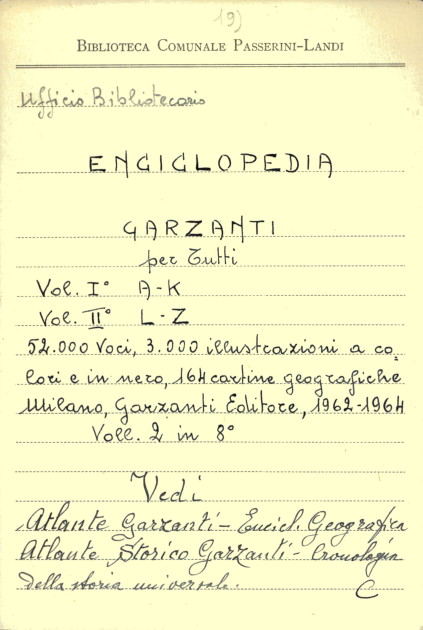 19)
BIBLIOTECA COMUNALE PASSERINI-LANDI
Ufficio Bibliotecario
ENCICLOPEDIA
GARZANTI
per Tutti
Vol. I° A-K
Vol. II° L-Z
52.000 voci, 3.000 illustrazioni a co=
lori e in nero, 164 cartine geografiche
Milano, Garzanti Editore, 1962-1964
Voll. 2 in 8°
Vedi
Atlante Garzanti - Encicl. Geografica
Atlante Storico Garzanti - Cronologia
della storia universale.
C